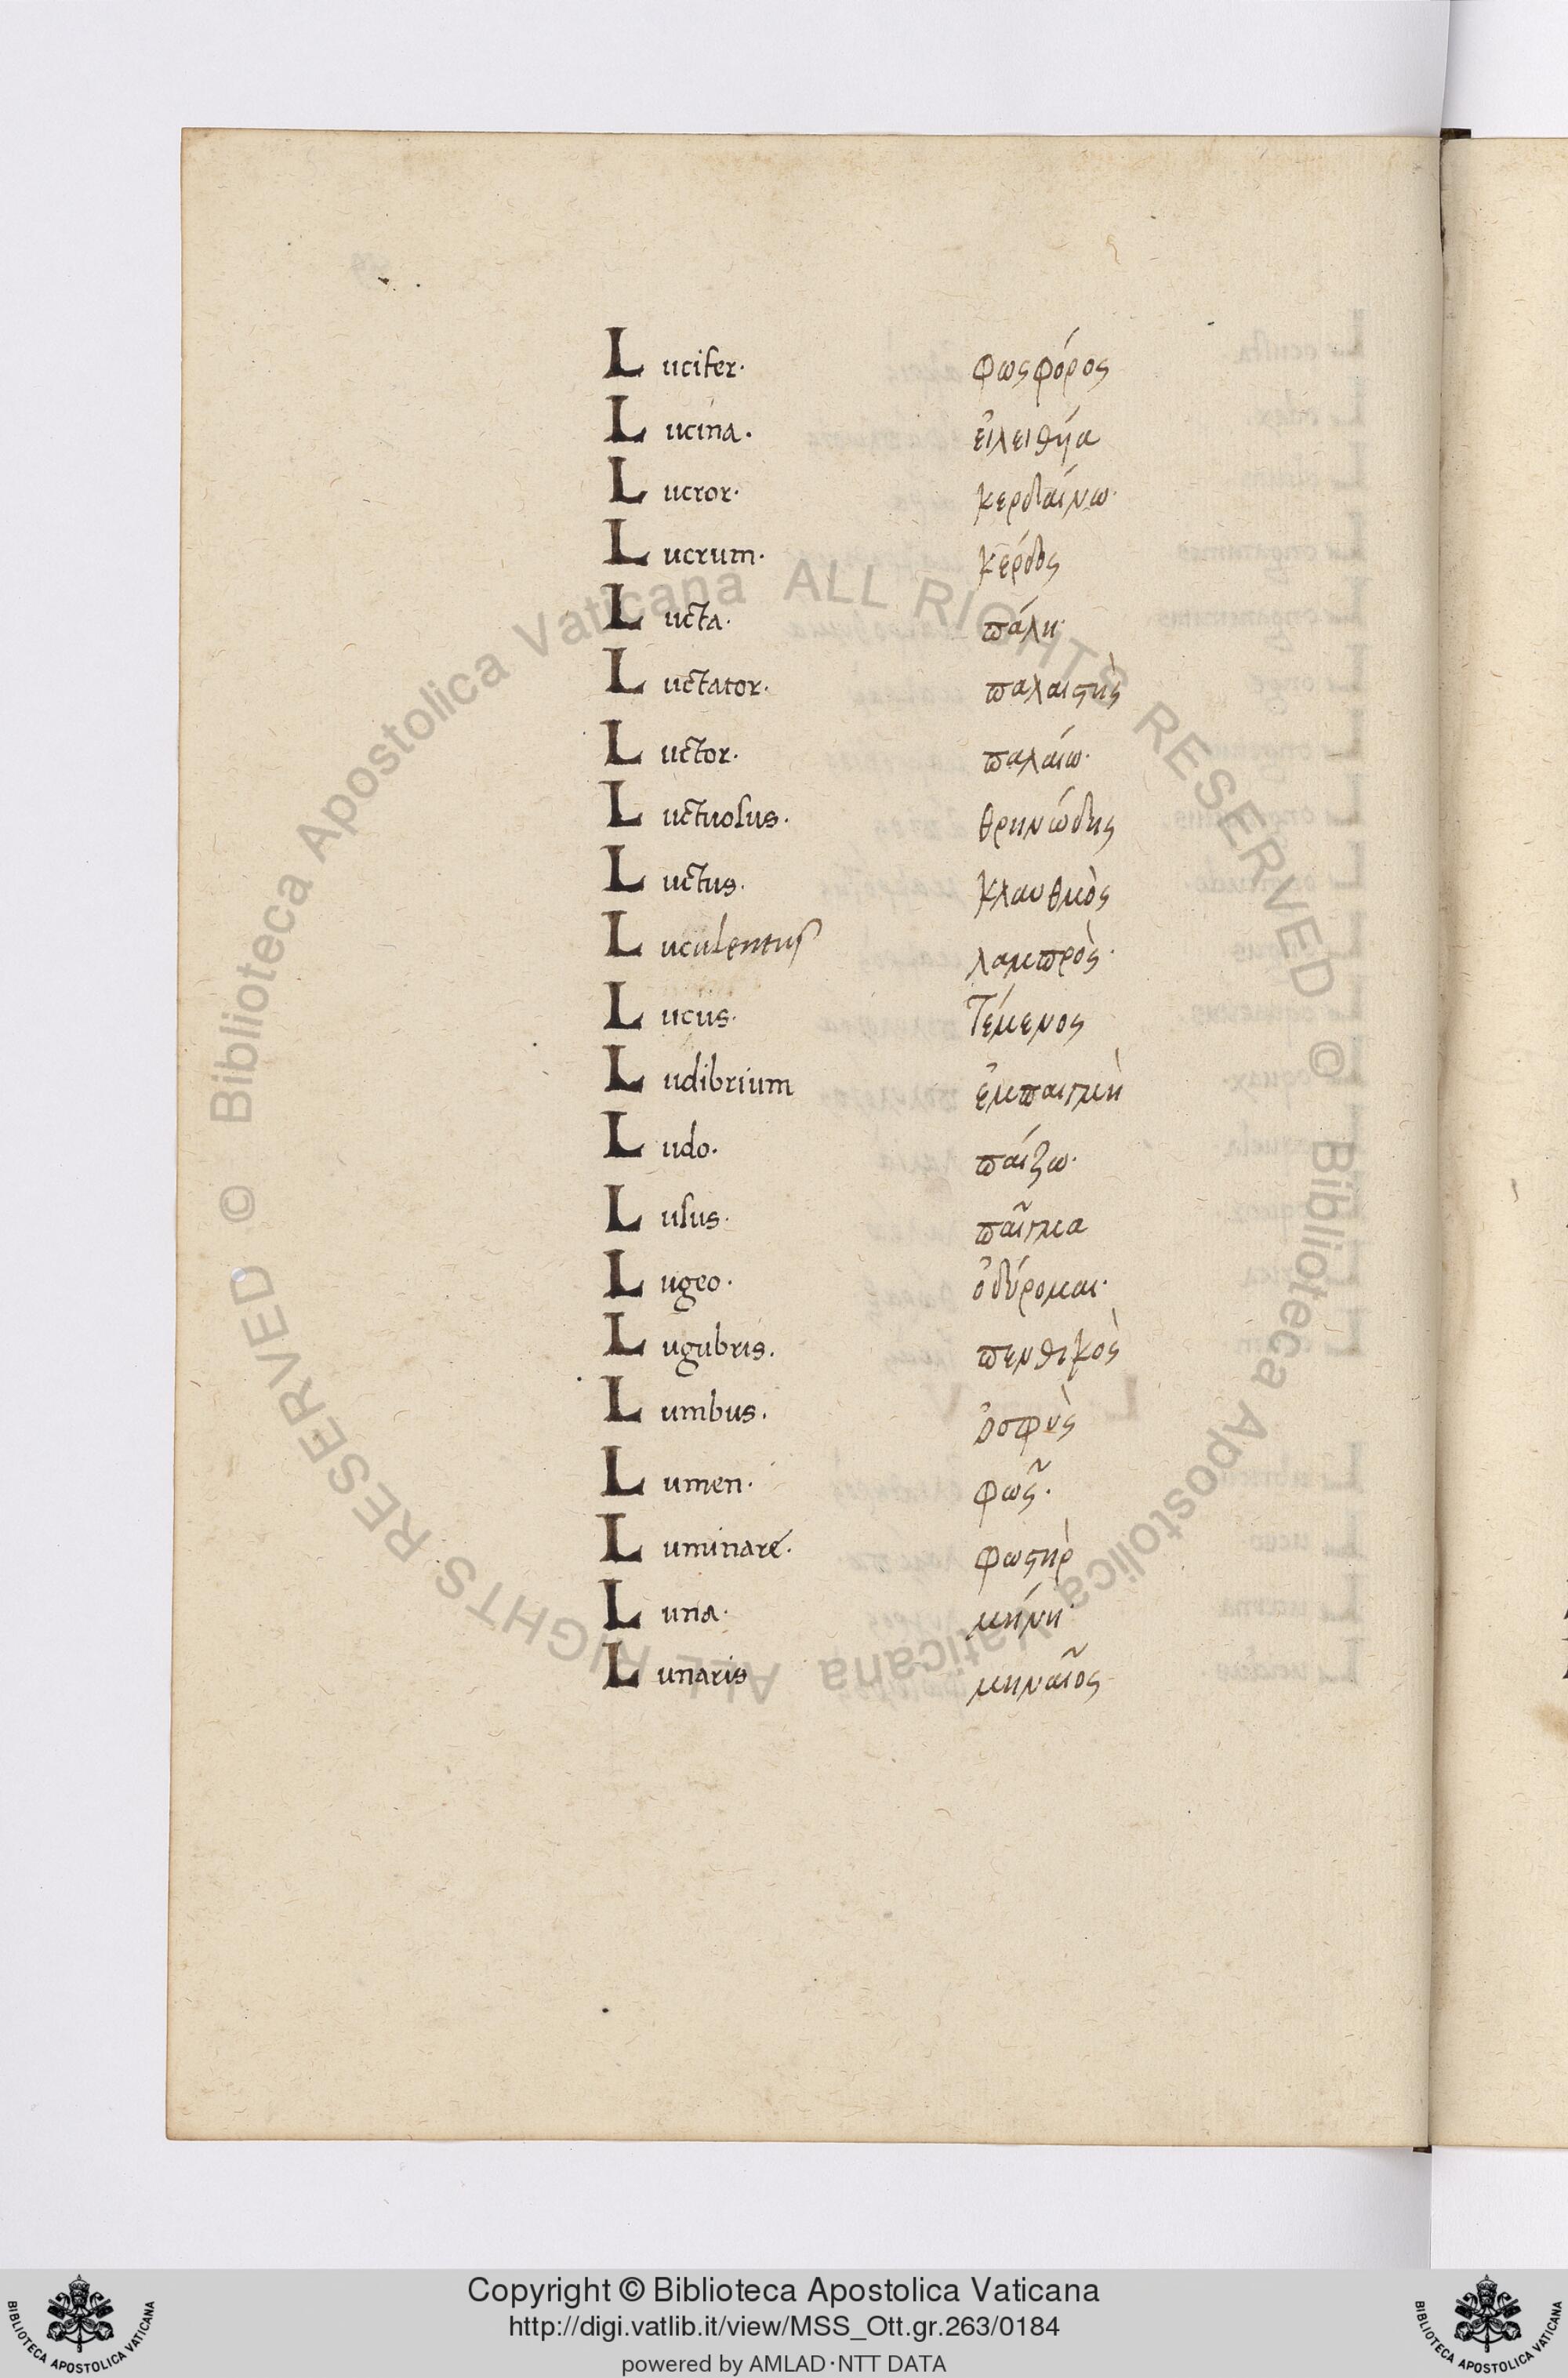 Lucifer· φωσφόρος
Lucina· εἰλειθήα
Lucror· κερδαίνω·
Lucrum· κέρδος
Lucta· πάλη·
Luctator· παλαιστὴς
Luctor· παλαίω·
Luctuosus· θρηνώδης
Luctus· κλαυθμὸς
Luculentus λαμπρὸς·
Lucus· τέμενος
Ludibrium ἐμπαιγμὴ
Ludo· παίζω·
Lusus· παῖγμα
Lugeo· ὀδύρομαι·
Lugubris· πενθικὸς
Lumbus· ὀσφὺς
Lumen· φῶς·
Luminare· φωστὴρ
Luna· μήνη·
Lunaris μηναῖος
© Biblioteca Apostolica Vaticana ALL RIGHTS RESERVED © Biblioteca Apostolica Vaticana ALL RIGHTS RESERVED
Copyright © Biblioteca Apostolica Vaticana
http://digi.vatlib.it/view/MSS_Ott.gr.263/0184
powered by AMLAD·NTT DATA
BIBLIOTECA APOSTOLICA VATICANA
BIBLIOTECA APOSTOLICA VATICANA